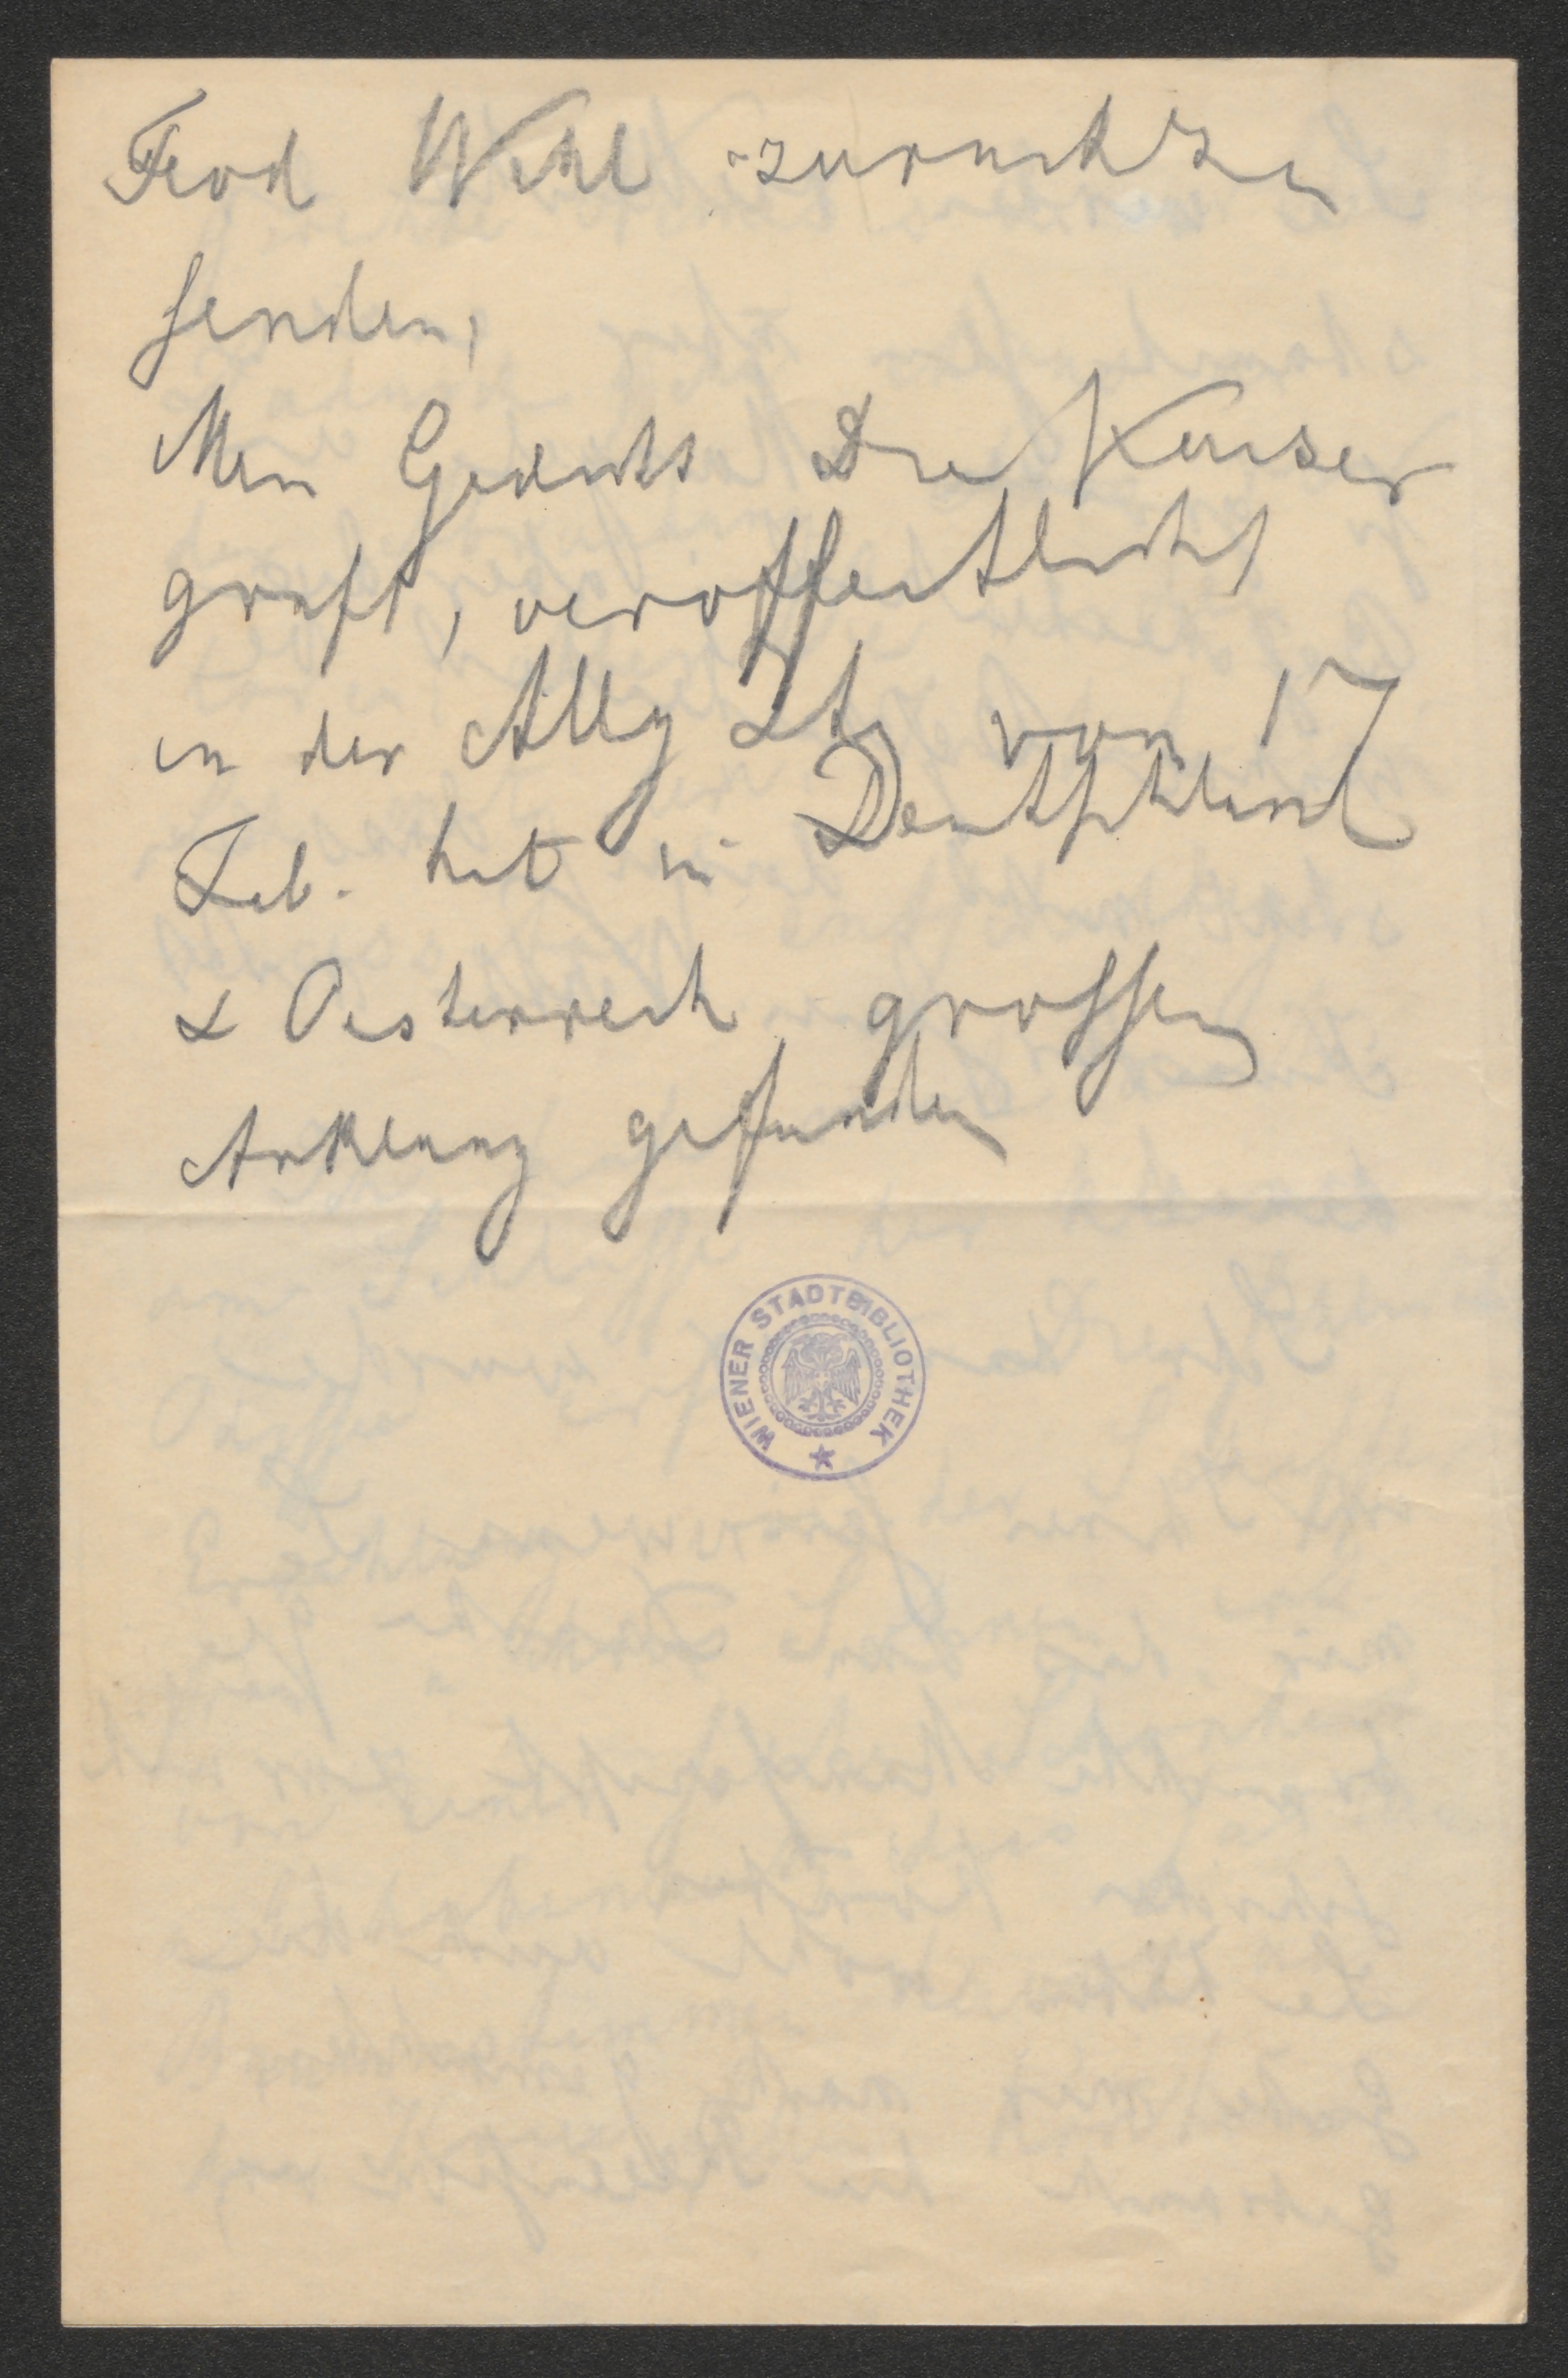 Ferd Wehl zurückzu
senden,
Mein Gedicht Die Kaiser
gruft, veröffentlicht
in der Allg Ztg von 17
Feb. hat in Deutschland
& Oesterreich grossen
Anklang gefunden
WIENER STADTBIBLIOTHEK